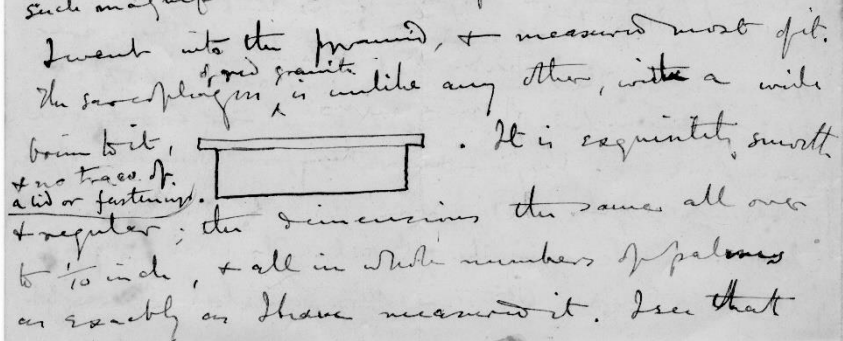 such
I went into the pyramid, & measured most of it.
of red granite
The sarcophagus ^ is unlike any other, with a wide
brim to it, . It is exquisitely smooth
& no trace of
a lid or fastening.
& regular; the dimensions the same all over
to 1/10 inch, & all in whole numbers of palms
as exactly as I have measured it. I see that